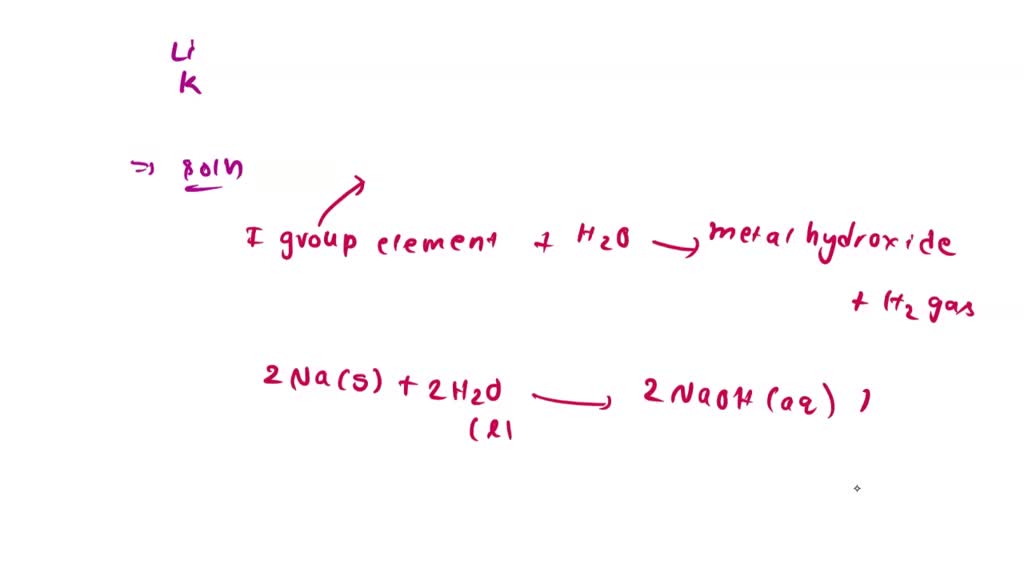 Li
K
⇒ soln
I group element + H2O → metal hydroxide
+ H2 gas
2Na(s) + 2H2O → 2NaOH(aq) )
(l)